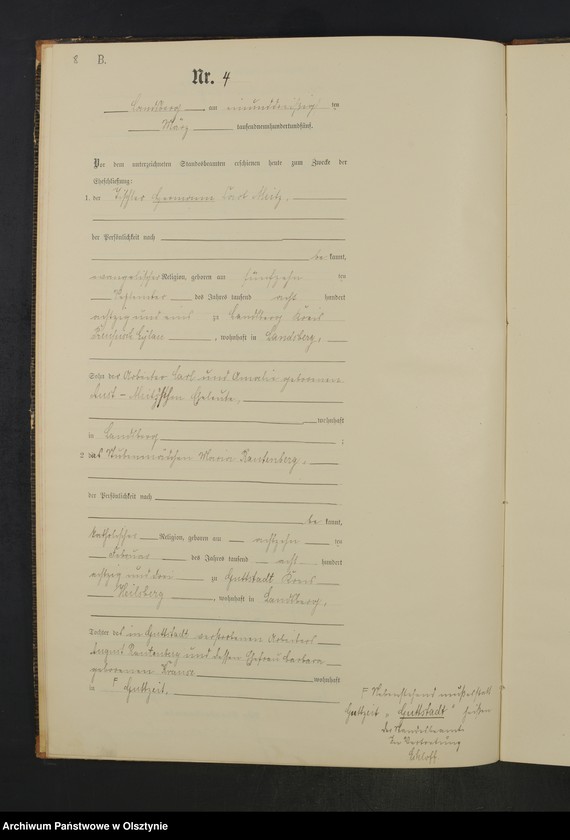 8 B.
Nr. 4
Landsberg, am einunddreißig ten
März tausendneunhundertundfünf.
Vor dem unterzeichneten Standesbeamten erschienen heute zum Zwecke der
Eheschließung:
1. der Tischler Hermann Carl
der Persönlichkeit nach
be kannt,
evangelischer Religion, geboren am fünfzehn ten
September des Jahres tausend acht hundert
achtzig und eins zu Landsberg Kreis
Preußisch Eylau, wohnhaft in Landsberg,
Sohn des Arbeiter Carl und Amalie geborenen
Eheleute,
wohnhaft
in Landsberg ;
2. das Stubenmädchen Maria Rautenberg,
der Persönlichkeit nach
be kannt,
katholischer Religion, geboren am achtzehn ten
Februar des Jahres tausend acht hundert
achtzig und drei zu Guttstadt Kreis
Heilsberg, wohnhaft in Landsberg,
Tochter des in Guttstadt verstorbenen Arbeiters
August Rautenberg und dessen Ehefrau Barbara
geborenen Krause wohnhaft
in Guttzeit.
Nebenstehend muß es statt
Guttzeit „Guttstadt" heißen
Der Standesbeamte
In Vertretung
Schloff
Archiwum Państwowe w Olsztynie